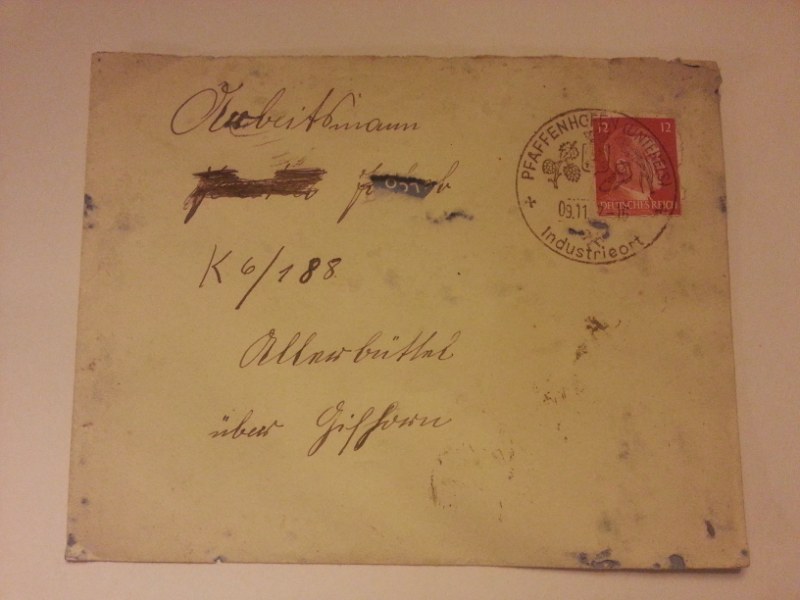 Arbeitsmann
K 6/188
Allerbüttel
über Gifhorn
PFAFFENHOFEN (UNTERELS)
09.11
Industrieort
12 12
DEUTSCHES REICH